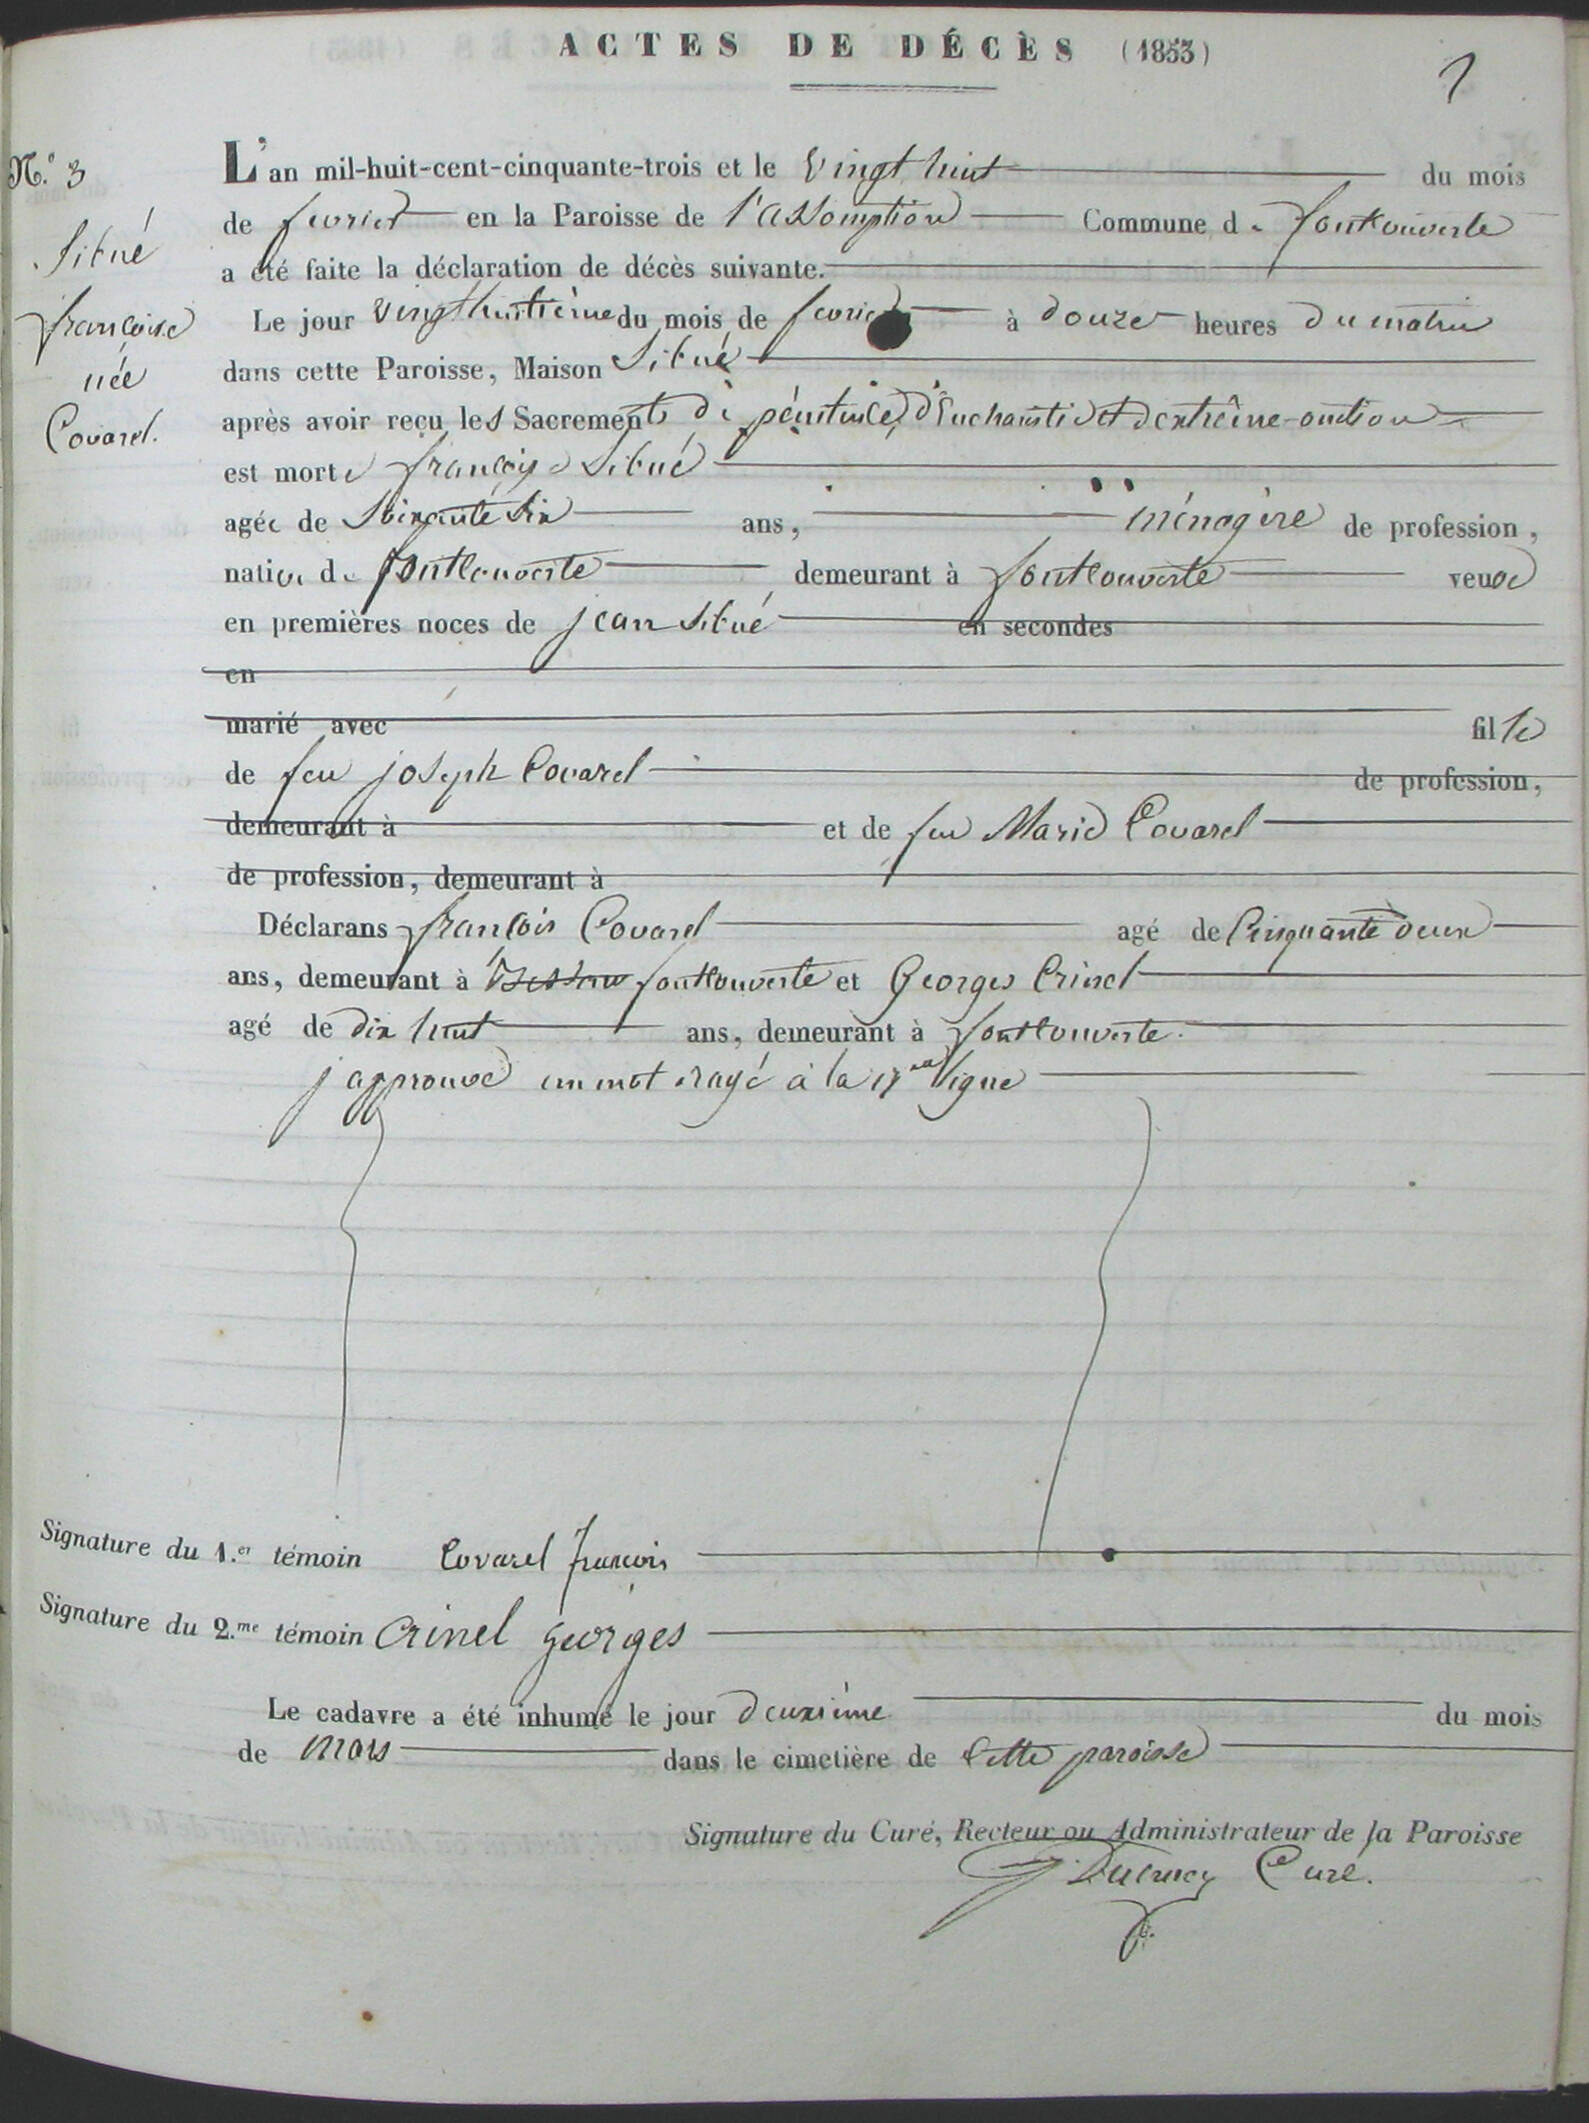 ACTES DE DÉCÈS (1853)
1
N.º 3
Situé
françoise
née
Covarel.
L'an mil-huit-cent-cinquante-trois et le vingt huit du mois
de fevrier en la Paroisse de l'assomption Commune de fontcouverte
a été faite la déclaration de décès suivante.
Le jour vingt huitième du mois de fevrier à douze heures du matin
dans cette Paroisse, Maison Situé
après avoir reçu les Sacrements de pénitence, d'Eucharistie et d'extrême-onction
est morte françoise Situé
agée de Soixante Six ans, ménagère de profession,
native de fontcouverte demeurant à fontcouverte veuve
en premières noces de jean Situé en secondes
en
marié avec fille
de feu joseph Covarel de profession,
demeurant à et de feu Marie Covarel
de profession, demeurant à
Déclarans françois Covarel agé de Cinquante deux
ans, demeurant à fontcouverte et Georges Crinel
agé de dix huit ans, demeurant à fontcouverte.
j'approuve un mot rayé à la 17me ligne
Signature du 1.er témoin Covarel françois
Signature du 2.me témoin Crinel georges
Le cadavre a été inhumé le jour deuxième du mois
de mars dans le cimetière de cette paroisse
Signature du Curé, Recteur ou Administrateur de la Paroisse
Curé.